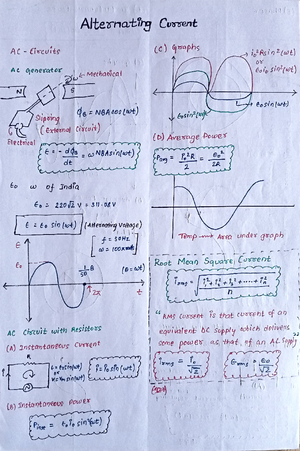 Alternating Current
AC - Circuits
AC Generator
Mechanical
N
S
Slipring
(External Circuit)
Electrical
ϕB = NBA cos(ωt)
ε = -dϕB/dt = ωNBA sin(ωt)
ε₀ ω of India
ε₀ = 220√2 V = 311.08V
ε = ε₀ sin(ωt)
(Alternating Voltage)
f = 50Hz
ω = 100π rad/s
ε
ε₀
(θ = ωt)
2π
t
AC Circuit with Resistors
(A) Instantaneous Current
i = i₀ sin(ωt)
(B) Instantaneous Power
ε₀ i₀ sin²(ωt)
(C) Graphs
i₀²R sin²(ωt)
or
ε₀i₀ sin²(ωt)
ε₀ sin(ωt)
(D) Average Power
= i₀²R/2 = ε₀²/2R
Area under graph
Root Mean Square Current
"RMS current is that current of an
equivalent DC supply which delivers
same power as that of an AC supply
irms = i₀/√2
εrms = ε₀/√2